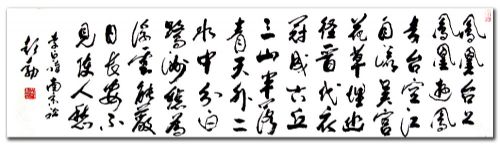 鳳凰台上
鳳凰遊鳳
去台空江
自流吳宮
花草埋幽
徑晋代衣
冠成古丘
三山半落
青天外二
水中分白
鷺洲總為
浮雲能蔽
日長安不
見使人愁
李白詩